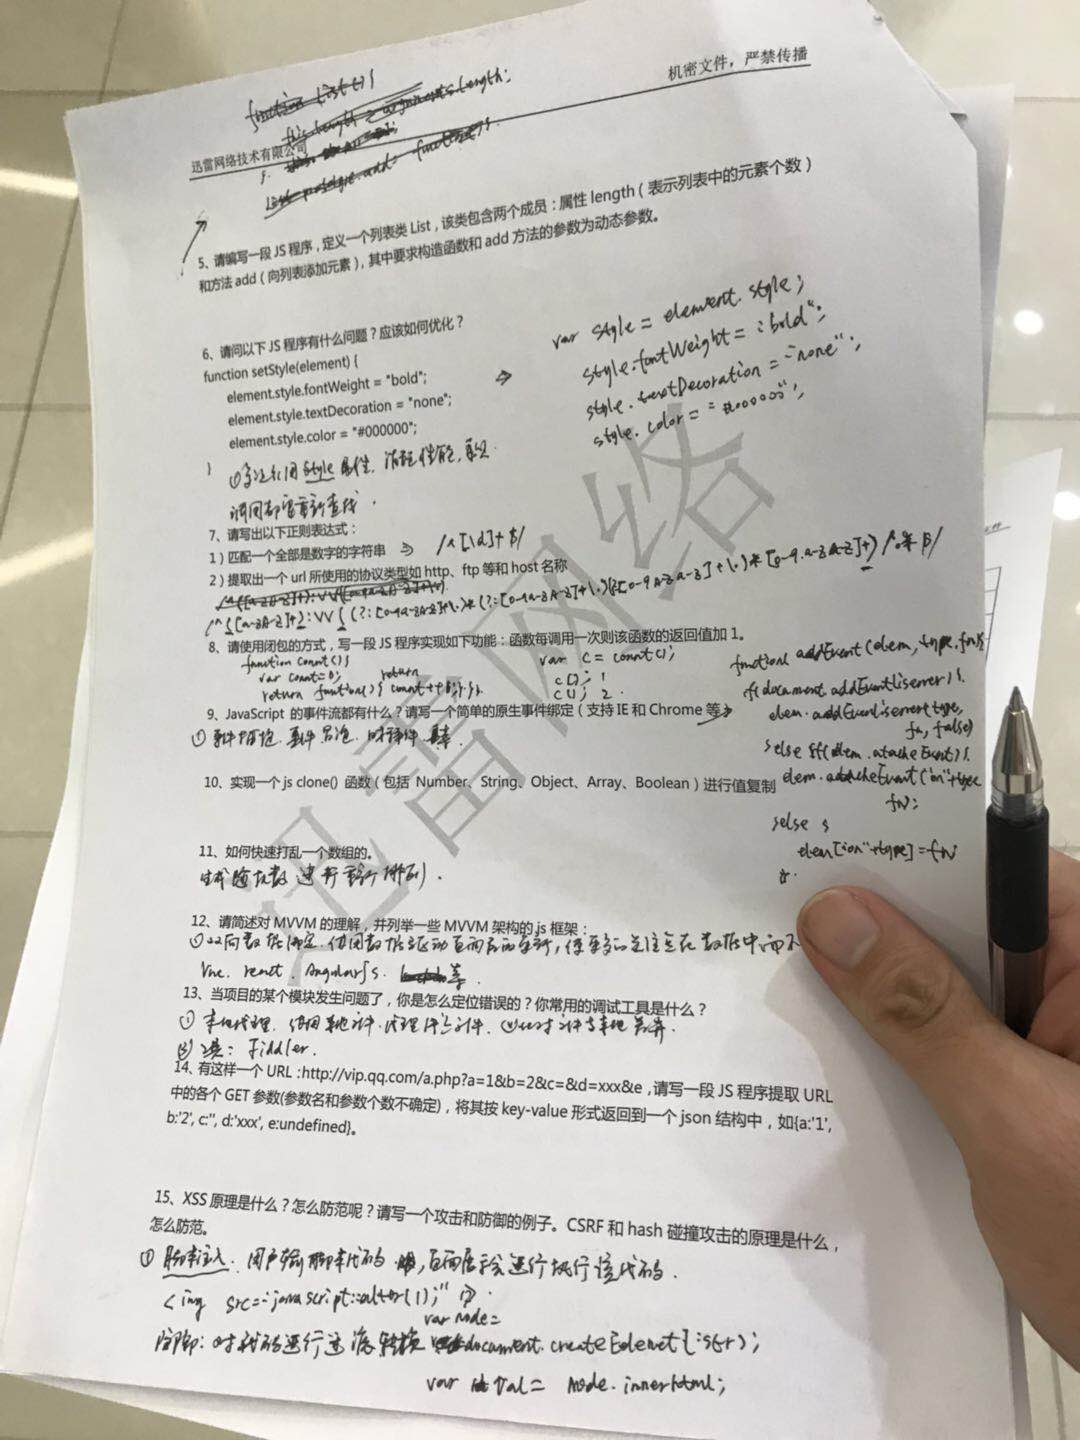 机密文件，严禁传播
迅雷网络技术有限公司
function List(){
this.length = arguments.length;
List.prototype.add = function(){
5、请编写一段 JS 程序，定义一个列表类 List，该类包含两个成员：属性 length（表示列表中的元素个数）
和方法 add（向列表添加元素），其中要求构造函数和 add 方法的参数为动态参数。
6、请问以下 JS 程序有什么问题？应该如何优化？
function setStyle(element) {
element.style.fontWeight = "bold";
element.style.textDecoration = "none";
element.style.color = "#000000";
}
var style = element.style;
style.fontWeight = "bold";
style.textDecoration = "none";
style.color = "#000000";
①多次引用style属性，消耗性能，每次
调用都需重新查找.
7、请写出以下正则表达式：
1）匹配一个全部是数字的字符串
/^[\d]+$/
2）提取出一个 url 所使用的协议类型如 http、ftp 等和 host 名称
8、请使用闭包的方式，写一段 JS 程序实现如下功能：函数每调用一次则该函数的返回值加 1。
function count(){
var count=0;
return function(){ return count++; }; }
var c = count();
c(); 1
c(); 2
9、JavaScript 的事件流都有什么？请写一个简单的原生事件绑定（支持 IE 和 Chrome 等
①事件捕捉. 事件冒泡.
function addEvent(elem, type, fn){
if(document.addEventListener){
elem.addEventListener(type,
fn, false)
}else if(elem.atacheEvent){
elem.attacheEvent("on"+type
fn);
}else {
elem["on"+type]=fn
}.
10、实现一个 js clone() 函数（包括 Number、String、Object、Array、Boolean）进行值复制
11、如何快速打乱一个数组的。
生成随机数 进行重新排列.
12、请简述对 MVVM 的理解，并列举一些 MVVM 架构的 js 框架：
①双向数据绑定. 使用数据驱动页面的更新, 使更多的关注点在数据中而不
Vue. react. AngularJs. 等.
13、当项目的某个模块发生问题了，你是怎么定位错误的？你常用的调试工具是什么？
①本地代理. 使用本地文件代理线上文件.
工具: Fiddler.
14、有这样一个 URL：http://vip.qq.com/a.php?a=1&b=2&c=&d=xxx&e，请写一段 JS 程序提取 URL
中的各个 GET 参数(参数名和参数个数不确定)，将其按 key-value 形式返回到一个 json 结构中，如{a:'1',
b:'2', c:'', d:'xxx', e:undefined}。
15、XSS 原理是什么？怎么防范呢？请写一个攻击和防御的例子。CSRF 和 hash 碰撞攻击的原理是什么，
怎么防范。
①脚本注入. 用户输入脚本代码, 页面展示会进行执行该代码.
<img src="javascript:alter(1);" />.
防御: 对代码进行过滤转换
var node =
document.createElement('str');
var val = node.innerHtml;
迅雷网络